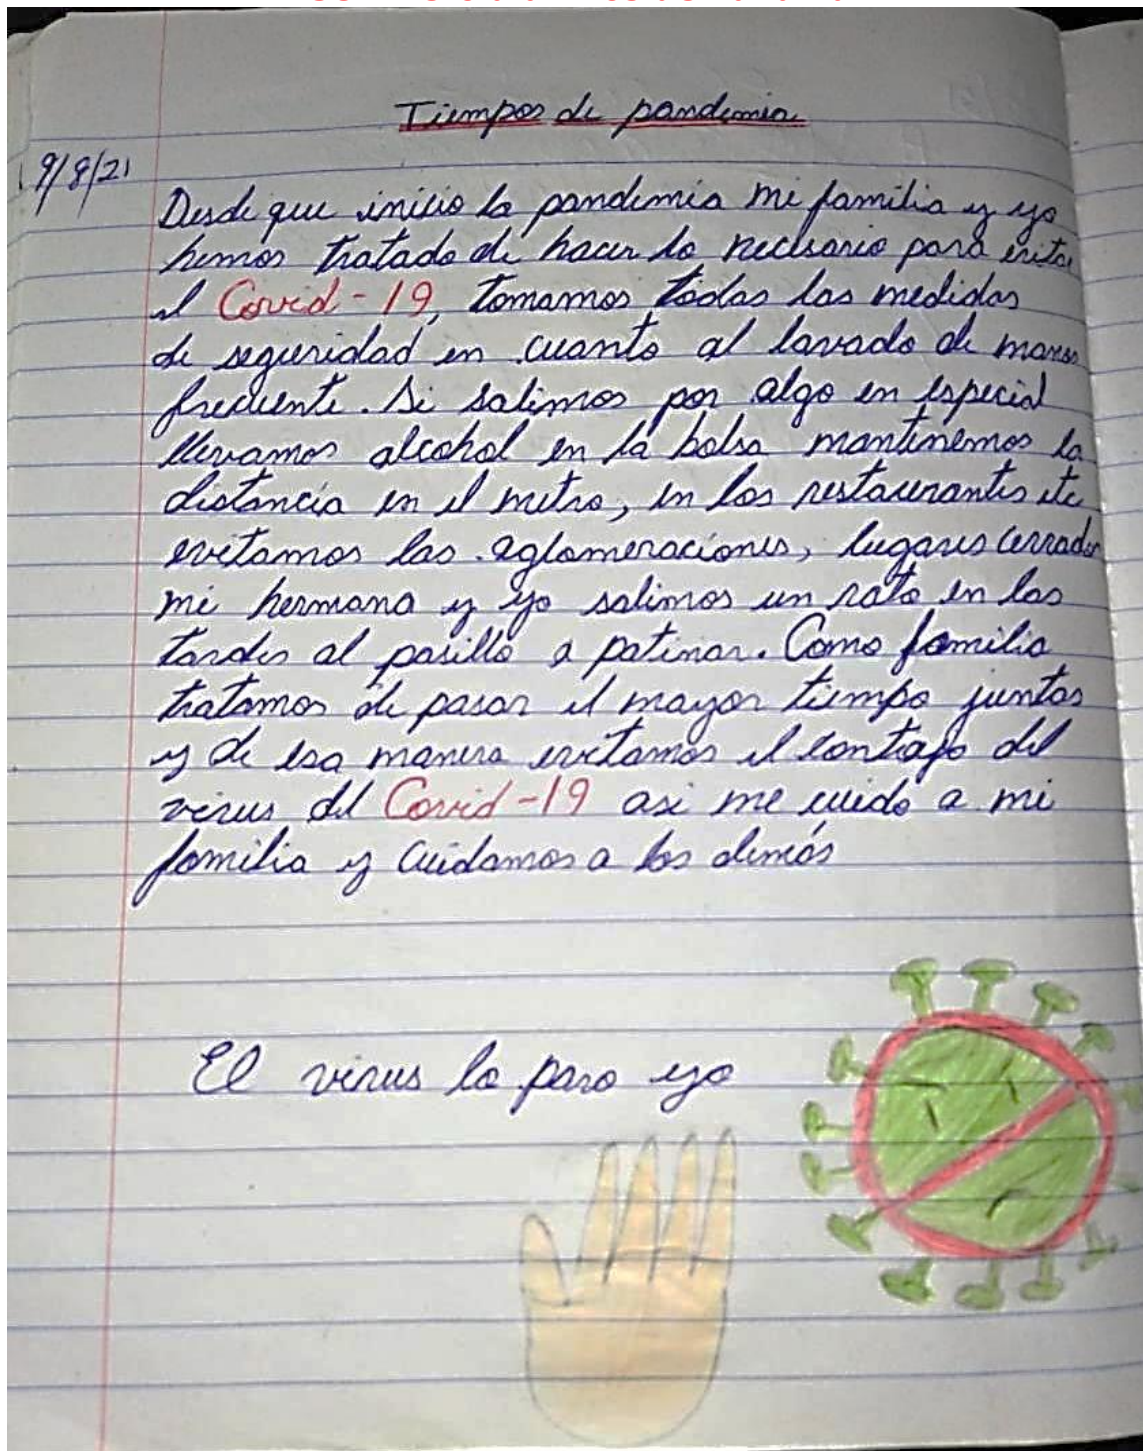 Tiempos de pandemia
19/8/21
Desde que inicio la pandemia mi familia y yo
hemos tratado de hacer lo necesario para evitar
el Covid-19, tomamos todas las medidas
de seguridad en cuanto al lavado de manos
frecuente. Si salimos por algo en especial
llevamos alcohol en la bolsa mantenemos la
distancia en el metro, en los restaurantes etc
evitamos las aglomeraciones, lugares cerrados
mi hermana y yo salimos un rato en las
tardes al pasillo a patinar. Como familia
tratamos de pasar el mayor tiempo juntos
y de esa manera evitamos el contagio del
virus del Covid-19 asi me cuido a mi
familia y cuidamos a los demás
El virus lo paro yo